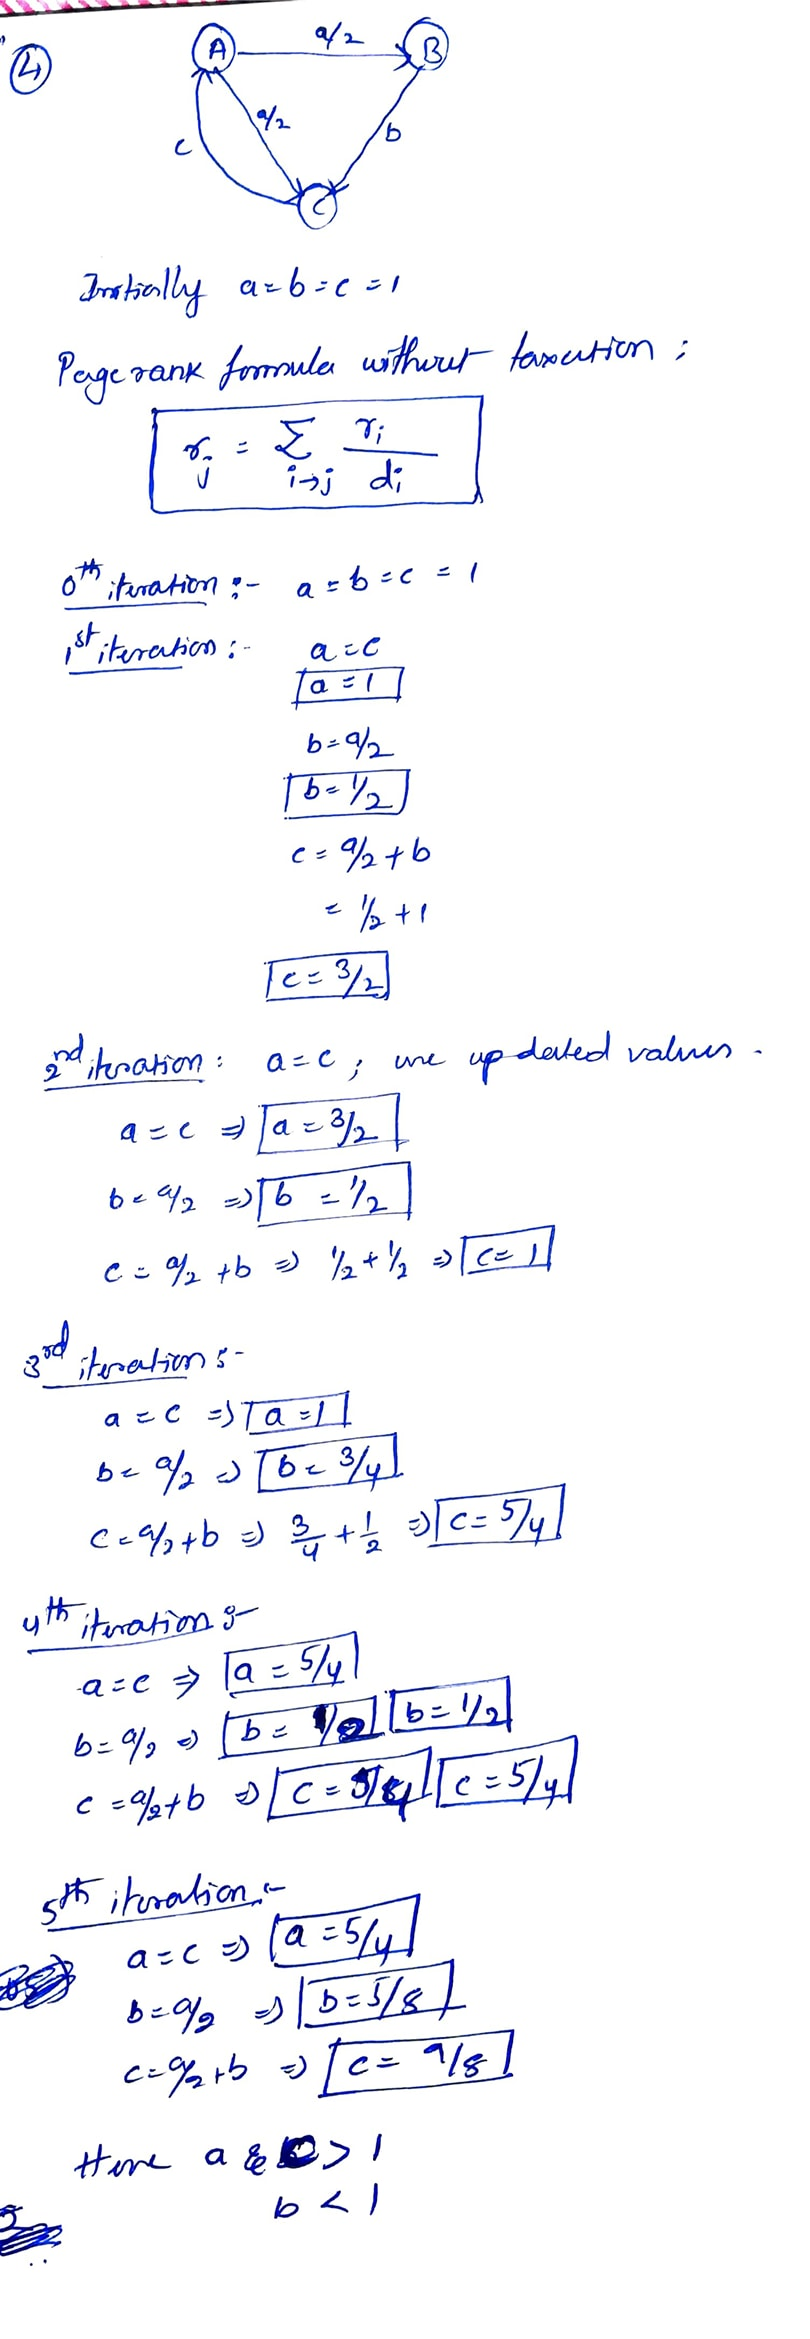 4
A
a/2
B
a/2
b
c
C
Initially a = b = c = 1
Page rank formula without taxation :
r_j = Σ_{i→j} r_i / d_i
0th iteration :- a = b = c = 1
1st iteration :- a = c
a = 1
b = a/2
b = 1/2
c = a/2 + b
= 1/2 + 1
c = 3/2
2nd iteration : a = c ; use updated values .
a = c ⇒ a = 3/2
b = a/2 ⇒ b = 1/2
c = a/2 + b ⇒ 1/2 + 1/2 ⇒ c = 1
3rd iteration :-
a = c ⇒ a = 1
b = a/2 ⇒ b = 3/4
c = a/2 + b ⇒ 3/4 + 1/2 ⇒ c = 5/4
4th iteration :-
a = c ⇒ a = 5/4
b = a/2 ⇒ b = 1/2 b = 1/2
c = a/2 + b ⇒ c = 5/4 c = 5/4
5th iteration :-
a = c ⇒ a = 5/4
b = a/2 ⇒ b = 5/8
c = a/2 + b ⇒ c = 9/8
Here a & c > 1
b < 1